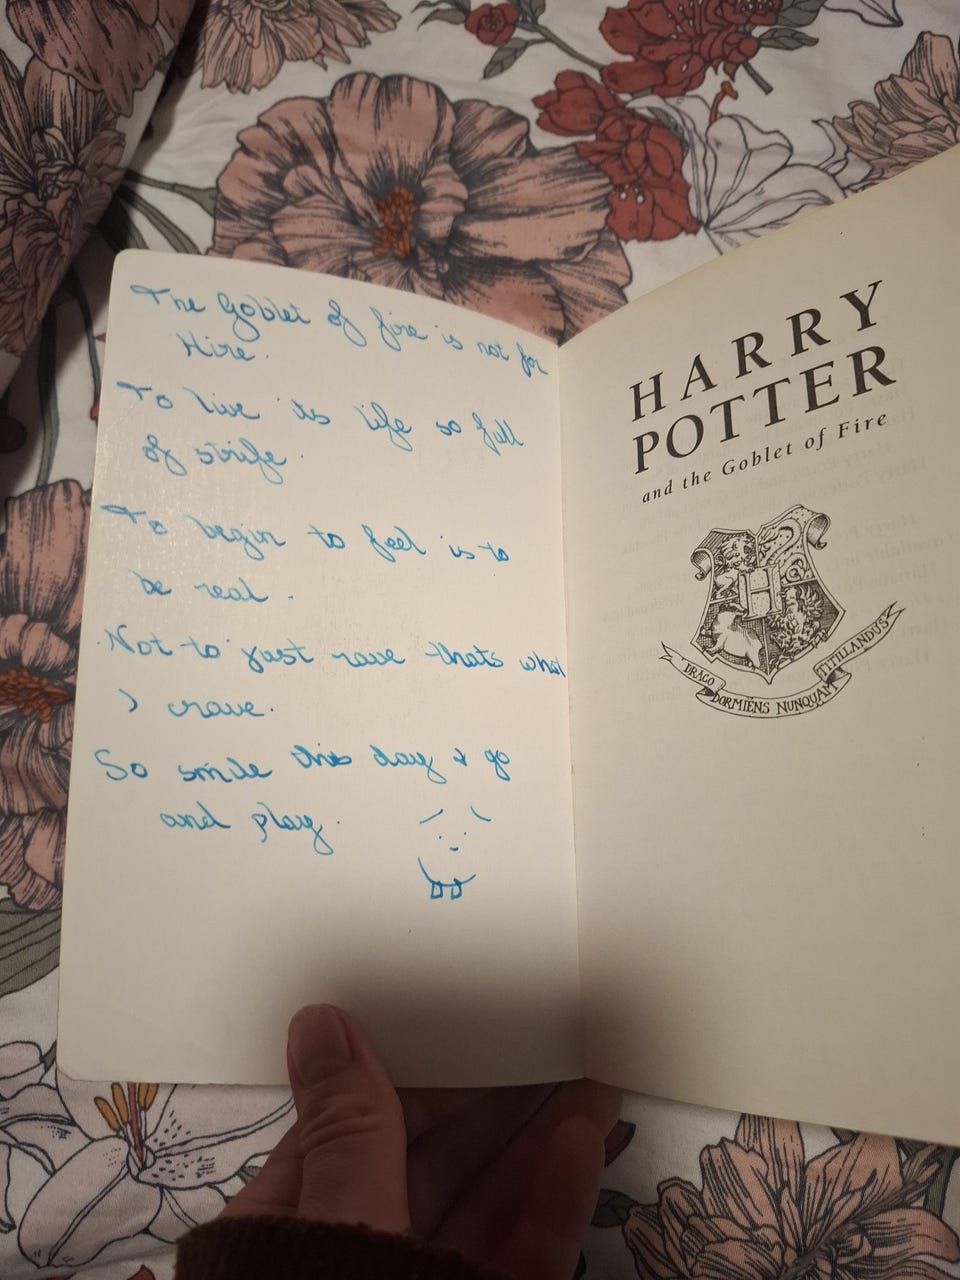 The Goblet of fire is not for
Hire.
To live its life so full
of strife.
To begin to feel is to
be real.
Not to just rave thats what
I crave.
So smile this day & go
and play.
HARRY
POTTER
and the Goblet of Fire
H
DRACO
DORMIENS NUNQUAM
TITILLANDUS